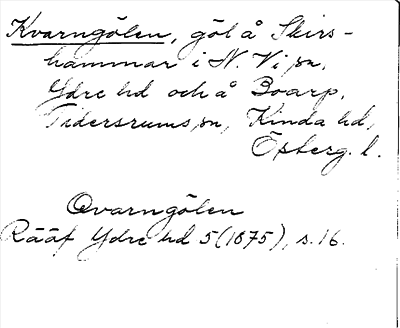 Kvarngölen, göl å Skirs-
hammar i N. Vi sn,
Ydre hd och å Boarp,
Tidersrums sn, Kinda hd,
Österg. l.
Qvarngölen
Rääf Ydre hd 5 (1875), s. 16.